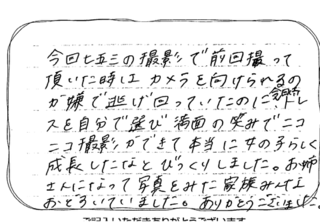 今回七五三の撮影で前回撮って
頂いた時は カメラを向けられるの
が嫌で逃げ回っていたのに、今回ドレ
スを自分で選び 満面の笑みでニコ
ニコ撮影ができて本当に女の子らしく
成長したなと びっくりしました。お姉
さんになって 写真をみた家族みんな
おどろいていました。ありがとうございました。
ご記入いただきありがとうございます